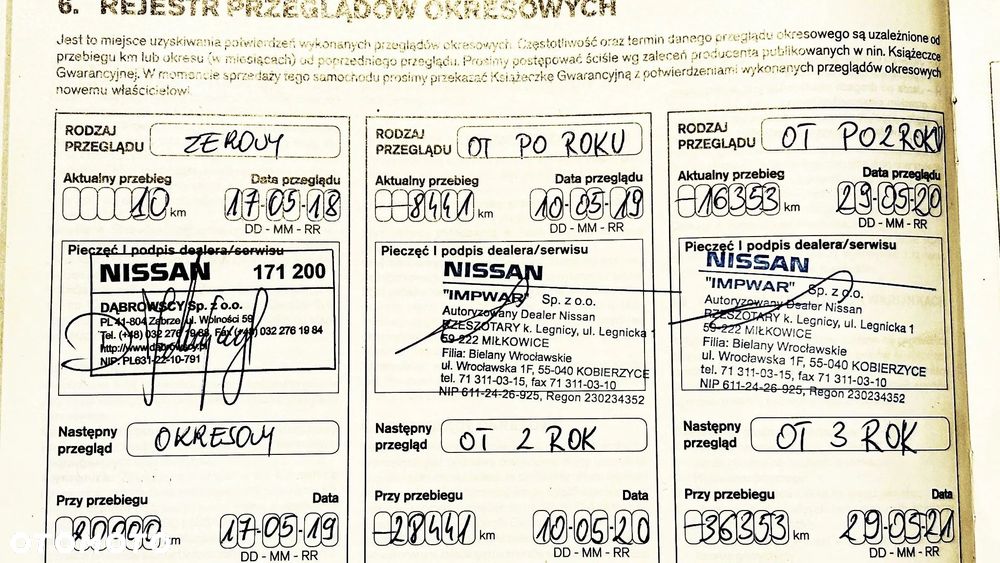 6. REJESTR PRZEGLĄDÓW OKRESOWYCH
Jest to miejsce uzyskiwania potwierdzeń wykonanych przeglądów okresowych. Częstotliwość oraz termin danego przeglądu okresowego są uzależnione od
przebiegu km lub okresu (w miesiącach) od poprzedniego przeglądu. Prosimy postępować ściśle wg zaleceń producenta publikowanych w nin. Książeczce
Gwarancyjnej. W momencie sprzedaży tego samochodu prosimy przekazać Książeczkę Gwarancyjną z potwierdzeniami wykonanych przeglądów okresowych
nowemu właścicielowi
RODZAJ
PRZEGLĄDU ZEROWY
Aktualny przebieg Data przeglądu
10 km 17-05-18
DD - MM - RR
Pieczęć I podpis dealera/serwisu
NISSAN 171 200
DĄBROWSCY Sp. z o.o.
PL 41-804 Zabrze, ul. Wolności 59
Tel. (+48) 032 276 19 88, Fax (+48) 032 276 19 84
http://www.dabrowscy.pl
NIP: PL631-22-10-791
Następny
przegląd OKRESOWY
Przy przebiegu Data
20000 km 17-05-19
DD - MM - RR
RODZAJ
PRZEGLĄDU OT PO ROKU
Aktualny przebieg Data przeglądu
8441 km 10-05-19
DD - MM - RR
Pieczęć I podpis dealera/serwisu
NISSAN
"IMPWAR" Sp. z o.o.
Autoryzowany Dealer Nissan
RZESZOTARY k. Legnicy, ul. Legnicka 1
59-222 MIŁKOWICE
Filia: Bielany Wrocławskie
ul. Wrocławska 1F, 55-040 KOBIERZYCE
tel. 71 311-03-15, fax 71 311-03-10
NIP 611-24-26-925, Regon 230234352
Następny
przegląd OT 2 ROK
Przy przebiegu Data
28441 km 10-05-20
DD - MM - RR
RODZAJ
PRZEGLĄDU OT PO 2 ROKU
Aktualny przebieg Data przeglądu
16353 km 29-05-20
DD - MM - RR
Pieczęć I podpis dealera/serwisu
NISSAN
"IMPWAR" Sp. z o.o.
Autoryzowany Dealer Nissan
RZESZOTARY k. Legnicy, ul. Legnicka 1
59-222 MIŁKOWICE
Filia: Bielany Wrocławskie
ul. Wrocławska 1F, 55-040 KOBIERZYCE
tel. 71 311-03-15, fax 71 311-03-10
NIP 611-24-26-925, Regon 230234352
Następny
przegląd OT 3 ROK
Przy przebiegu Data
36353 km 29-05-21
DD - MM - RR
OTOMOTO